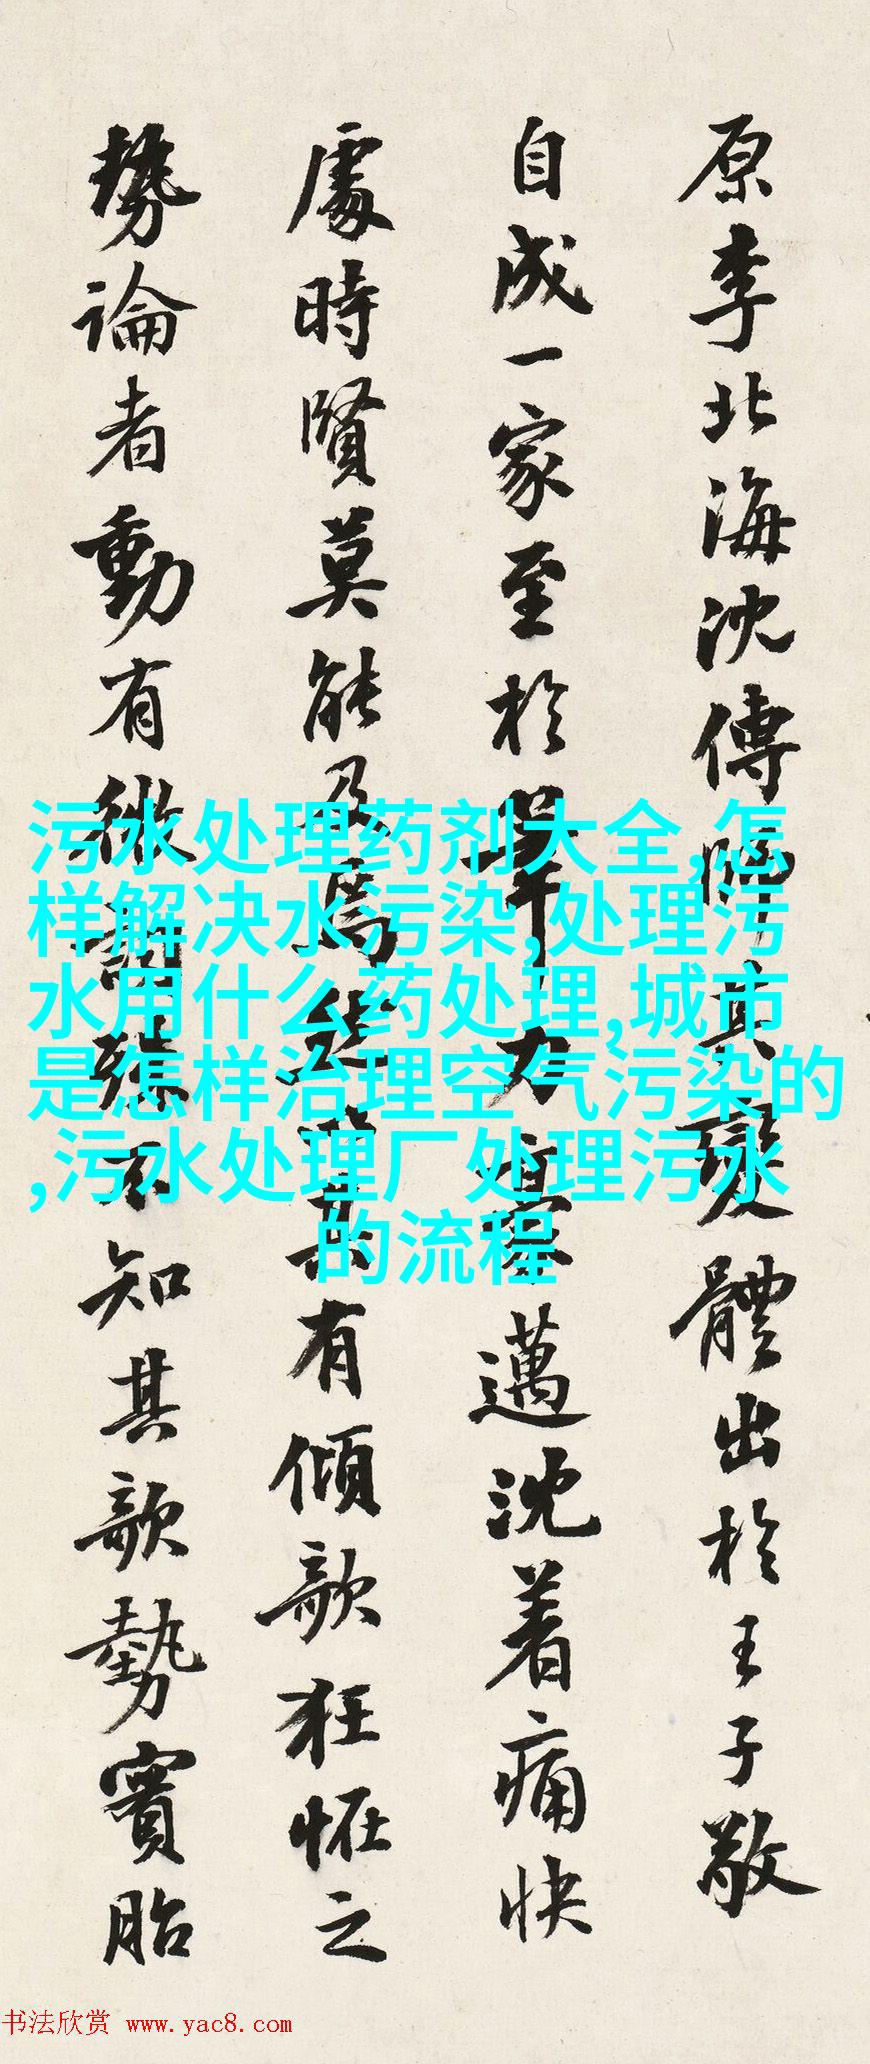 原李北海沈傳師其變體出於王子敬
自成一家至於筆力豪邁沈着痛快
處時賢莫能及焉然其有傾欹狂怪之
勢論者動有微詞殊不知其欹勢實胎
污水处理药剂大全,怎
样解决水污染,处理污
水用什么药处理,城市
是怎样治理空气污染的
,污水处理厂处理污水
的流程
书法欣赏 www.yac8.com